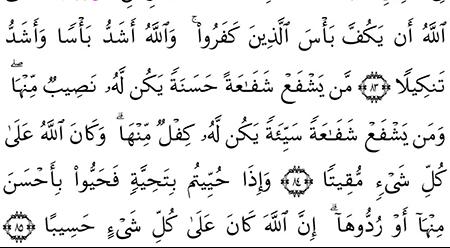 ٱللَّهُ أَن يَكُفَّ بَأۡسَ ٱلَّذِينَ كَفَرُواْۚ وَٱللَّهُ أَشَدُّ بَأۡسٗا وَأَشَدُّ
تَنكِيلٗا ٨٣ مَّن يَشۡفَعۡ شَفَٰعَةً حَسَنَةٗ يَكُن لَّهُۥ نَصِيبٞ مِّنۡهَاۖ
وَمَن يَشۡفَعۡ شَفَٰعَةٗ سَيِّئَةٗ يَكُن لَّهُۥ كِفۡلٞ مِّنۡهَاۗ وَكَانَ ٱللَّهُ عَلَىٰ
كُلِّ شَيۡءٖ مُّقِيتٗا ٨٤ وَإِذَا حُيِّيتُم بِتَحِيَّةٖ فَحَيُّواْ بِأَحۡسَنَ
مِنۡهَآ أَوۡ رُدُّوهَآۗ إِنَّ ٱللَّهَ كَانَ عَلَىٰ كُلِّ شَيۡءٍ حَسِيبًا ٨٥